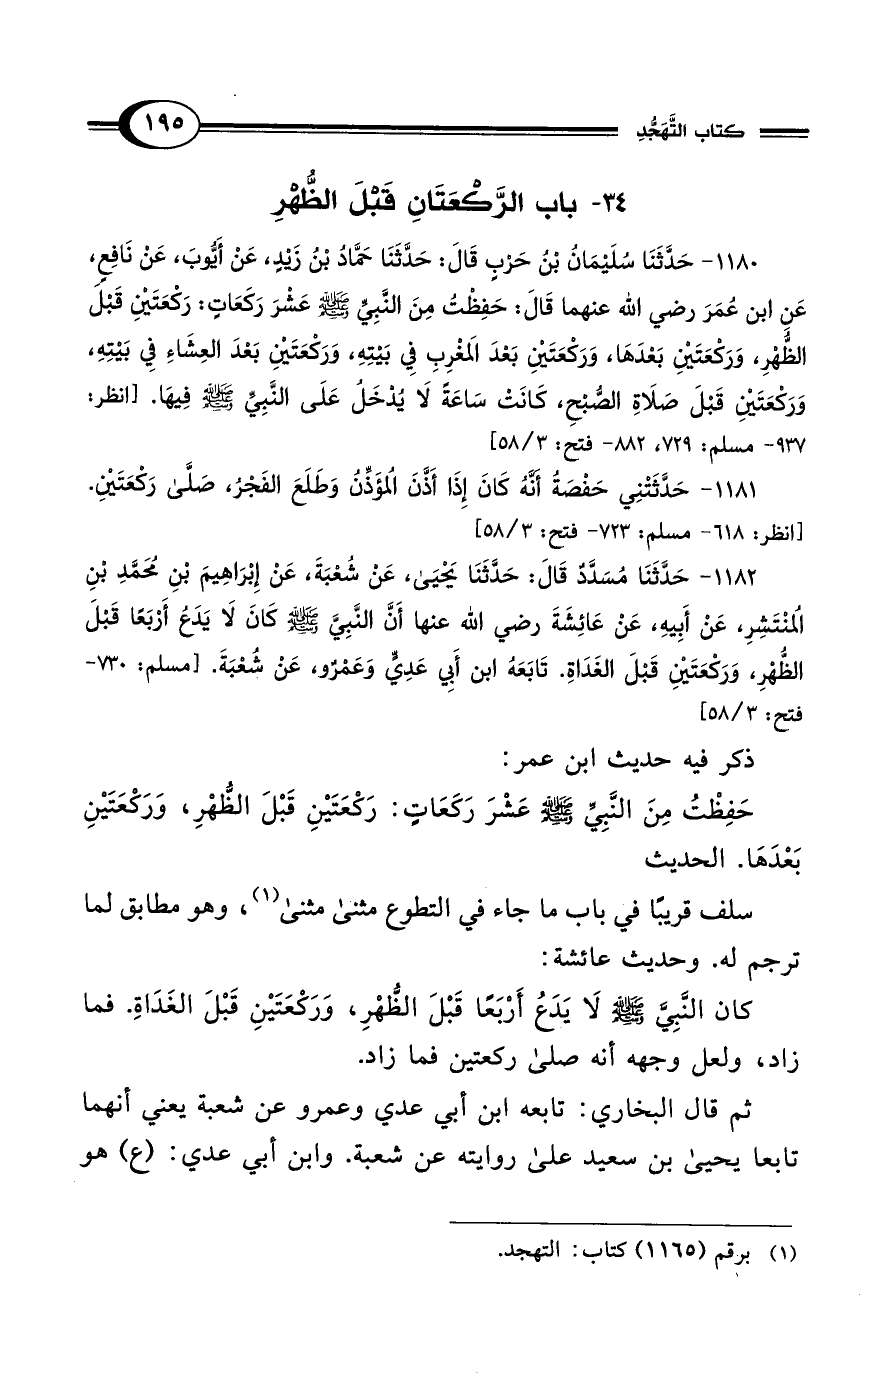 كتاب التَّهَجُّدِ ١٩٥
٣٤- باب الرَّكْعَتَانِ قَبْلَ الظُّهْرِ
١١٨٠- حَدَّثَنَا سُلَيْمَانُ بْنُ حَرْبٍ قَالَ: حَدَّثَنَا حَمَّادُ بْنُ زَيْدٍ، عَنْ أَيُّوبَ، عَنْ نَافِعٍ،
عَنِ ابن عُمَرَ رضي الله عنهما قَالَ: حَفِظْتُ مِنَ النَّبِيِّ ﷺ عَشْرَ رَكَعَاتٍ: رَكْعَتَيْنِ قَبْلَ
الظُّهْرِ، وَرَكْعَتَيْنِ بَعْدَهَا، وَرَكْعَتَيْنِ بَعْدَ المَغْرِبِ فِي بَيْتِهِ، وَرَكْعَتَيْنِ بَعْدَ العِشَاءِ فِي بَيْتِهِ،
وَرَكْعَتَيْنِ قَبْلَ صَلَاةِ الصُّبْحِ، كَانَتْ سَاعَةً لَا يُدْخَلُ عَلَى النَّبِيِّ ﷺ فِيهَا. [انظر:
٩٣٧- مسلم: ٧٢٩، ٨٨٢- فتح: ٣/ ٥٨]
١١٨١- حَدَّثَتْنِي حَفْصَةُ أَنَّهُ كَانَ إِذَا أَذَّنَ المُؤَذِّنُ وَطَلَعَ الفَجْرُ، صَلَّىٰ رَكْعَتَيْنِ.
[انظر: ٦١٨- مسلم: ٧٢٣- فتح: ٣/ ٥٨]
١١٨٢- حَدَّثَنَا مُسَدَّدٌ قَالَ: حَدَّثَنَا يَحْيَىٰ، عَنْ شُعْبَةَ، عَنْ إِبْرَاهِيمَ بْنِ مُحَمَّدِ بْنِ
المُنْتَشِرِ، عَنْ أَبِيهِ، عَنْ عَائِشَةَ رضي الله عنها أَنَّ النَّبِيَّ ﷺ كَانَ لَا يَدَعُ أَرْبَعًا قَبْلَ
الظُّهْرِ، وَرَكْعَتَيْنِ قَبْلَ الغَدَاةِ. تَابَعَهُ ابن أَبِي عَدِيٍّ وَعَمْرٌو، عَنْ شُعْبَةَ. [مسلم: ٧٣٠-
فتح: ٣/ ٥٨]
ذكر فيه حديث ابن عمر:
حَفِظْتُ مِنَ النَّبِيِّ ﷺ عَشْرَ رَكَعَاتٍ: رَكْعَتَيْنِ قَبْلَ الظُّهْرِ، وَرَكْعَتَيْنِ
بَعْدَهَا. الحديث
سلف قريبًا في باب ما جاء في التطوع مثنىٰ مثنىٰ(١)، وهو مطابق لما
ترجم له. وحديث عائشة:
كان النَّبِيَّ ﷺ لَا يَدَعُ أَرْبَعًا قَبْلَ الظُّهْرِ، وَرَكْعَتَيْنِ قَبْلَ الغَدَاةِ. فما
زاد، ولعل وجهه أنه صلىٰ ركعتين فما زاد.
ثم قال البخاري: تابعه ابن أبي عدي وعمرو عن شعبة يعني أنهما
تابعا يحيىٰ بن سعيد علىٰ روايته عن شعبة. وابن أبي عدي: (ع) هو
(١) برقم (١١٦٥) كتاب: التهجد.